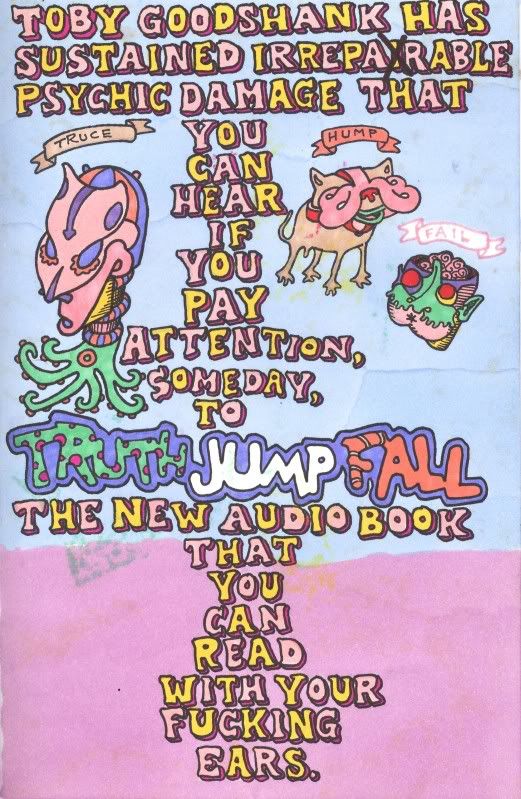 TOBY GOODSHANK HAS
SUSTAINED IRREPAXRABLE
PSYCHIC DAMAGE THAT
TRUCE
HUMP
FAIL
YOU
CAN
HEAR
IF
YOU
PAY
ATTENTION,
SOMEDAY,
TO
TRUTH JUMP FALL
THE NEW AUDIO BOOK
THAT
YOU
CAN
READ
WITH YOUR
FUCKING
EARS.